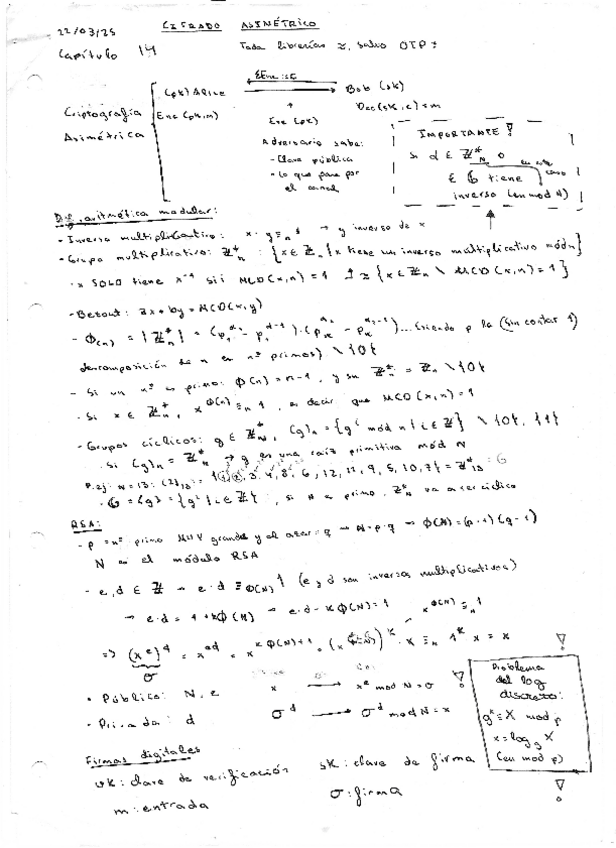 22/03/25 CIFRADO ASIMÉTRICO
Capítulo 14 Toda librerías ≥, salvo OTP:
Criptografía Asimétrica
(pk) Alice Bob (sk)
Enc(pk,m) Dec(sk,c)=m
Enc(pk)
Adversario sabe:
- Clave pública
- Lo que pasa por
el canal
IMPORTANTE!
si α ∈ Z*_N o
∈ G tiene
inverso (en mod N)
aritmética modular:
- Inverso multiplicativo: x · y ≡_n 1 → y inverso de x
- Grupo multiplicativo: Z*_n : {x ∈ Z_n | x tiene un inverso multiplicativo mód n}
· x SOLO tiene x⁻¹ sii MCD(x,n)=1 {x ∈ Z_n \ MCD(x,n)=1}
- Bezout: ax + by = MCD(x,y)
- Φ(n) = |Z*_n| = (p₁^α₁ - p₁^α₁-1) · (p_k^α_k - p_k^α_k-1)... siendo p la (sin contar 1)
descomposición de n en nº primos) \ {0}
- Si un nº es primo: Φ(n) = n-1, y su Z*_n = Z_n \ {0}
- Si x ∈ Z*_n, x^Φ(n) ≡_n 1, es decir que MCD(x,n)=1
- Grupos cíclicos: g ∈ Z*_N, ⟨g⟩_n = {g^i mód n | i ∈ Z} \ {0}, {1}
· Si ⟨g⟩_n = Z*_n → g es una raíz primitiva mód N
P.ej: N=13: ⟨2⟩₁₃ = 3, 4, 8, 6, 12, 11, 9, 5, 10, 7} = Z*₁₃ = G
· G = ⟨g⟩ = {g^i | i ∈ Z}, si N es primo, Z*_N va a ser cíclico
RSA:
- p = nº primo MUY grande y al azar = q → N = p · q → Φ(N) = (p-1)(q-1)
N es el módulo RSA
- e, d ∈ Z → e · d ≡_Φ(N) 1 (e y d son inversos multiplicativos)
→ e · d = 1 + kΦ(N) → e · d - kΦ(N) = 1 x^Φ(N) ≡_n 1
=> (x^e)^d = x^ed = x^kΦ(N)+1 = (x^Φ(N))^k · x ≡_n 1^k x = x
σ
• Público: N, e x → x^e mod N = σ
- Privada: d σ^d → σ^d mod N = x
Problema
del log
discreto:
g^x ≡ X mod p
x = log_g X
(en mod p)
Firmas digitales
vk: clave de verificación sk: clave de firma
m: entrada σ: firma